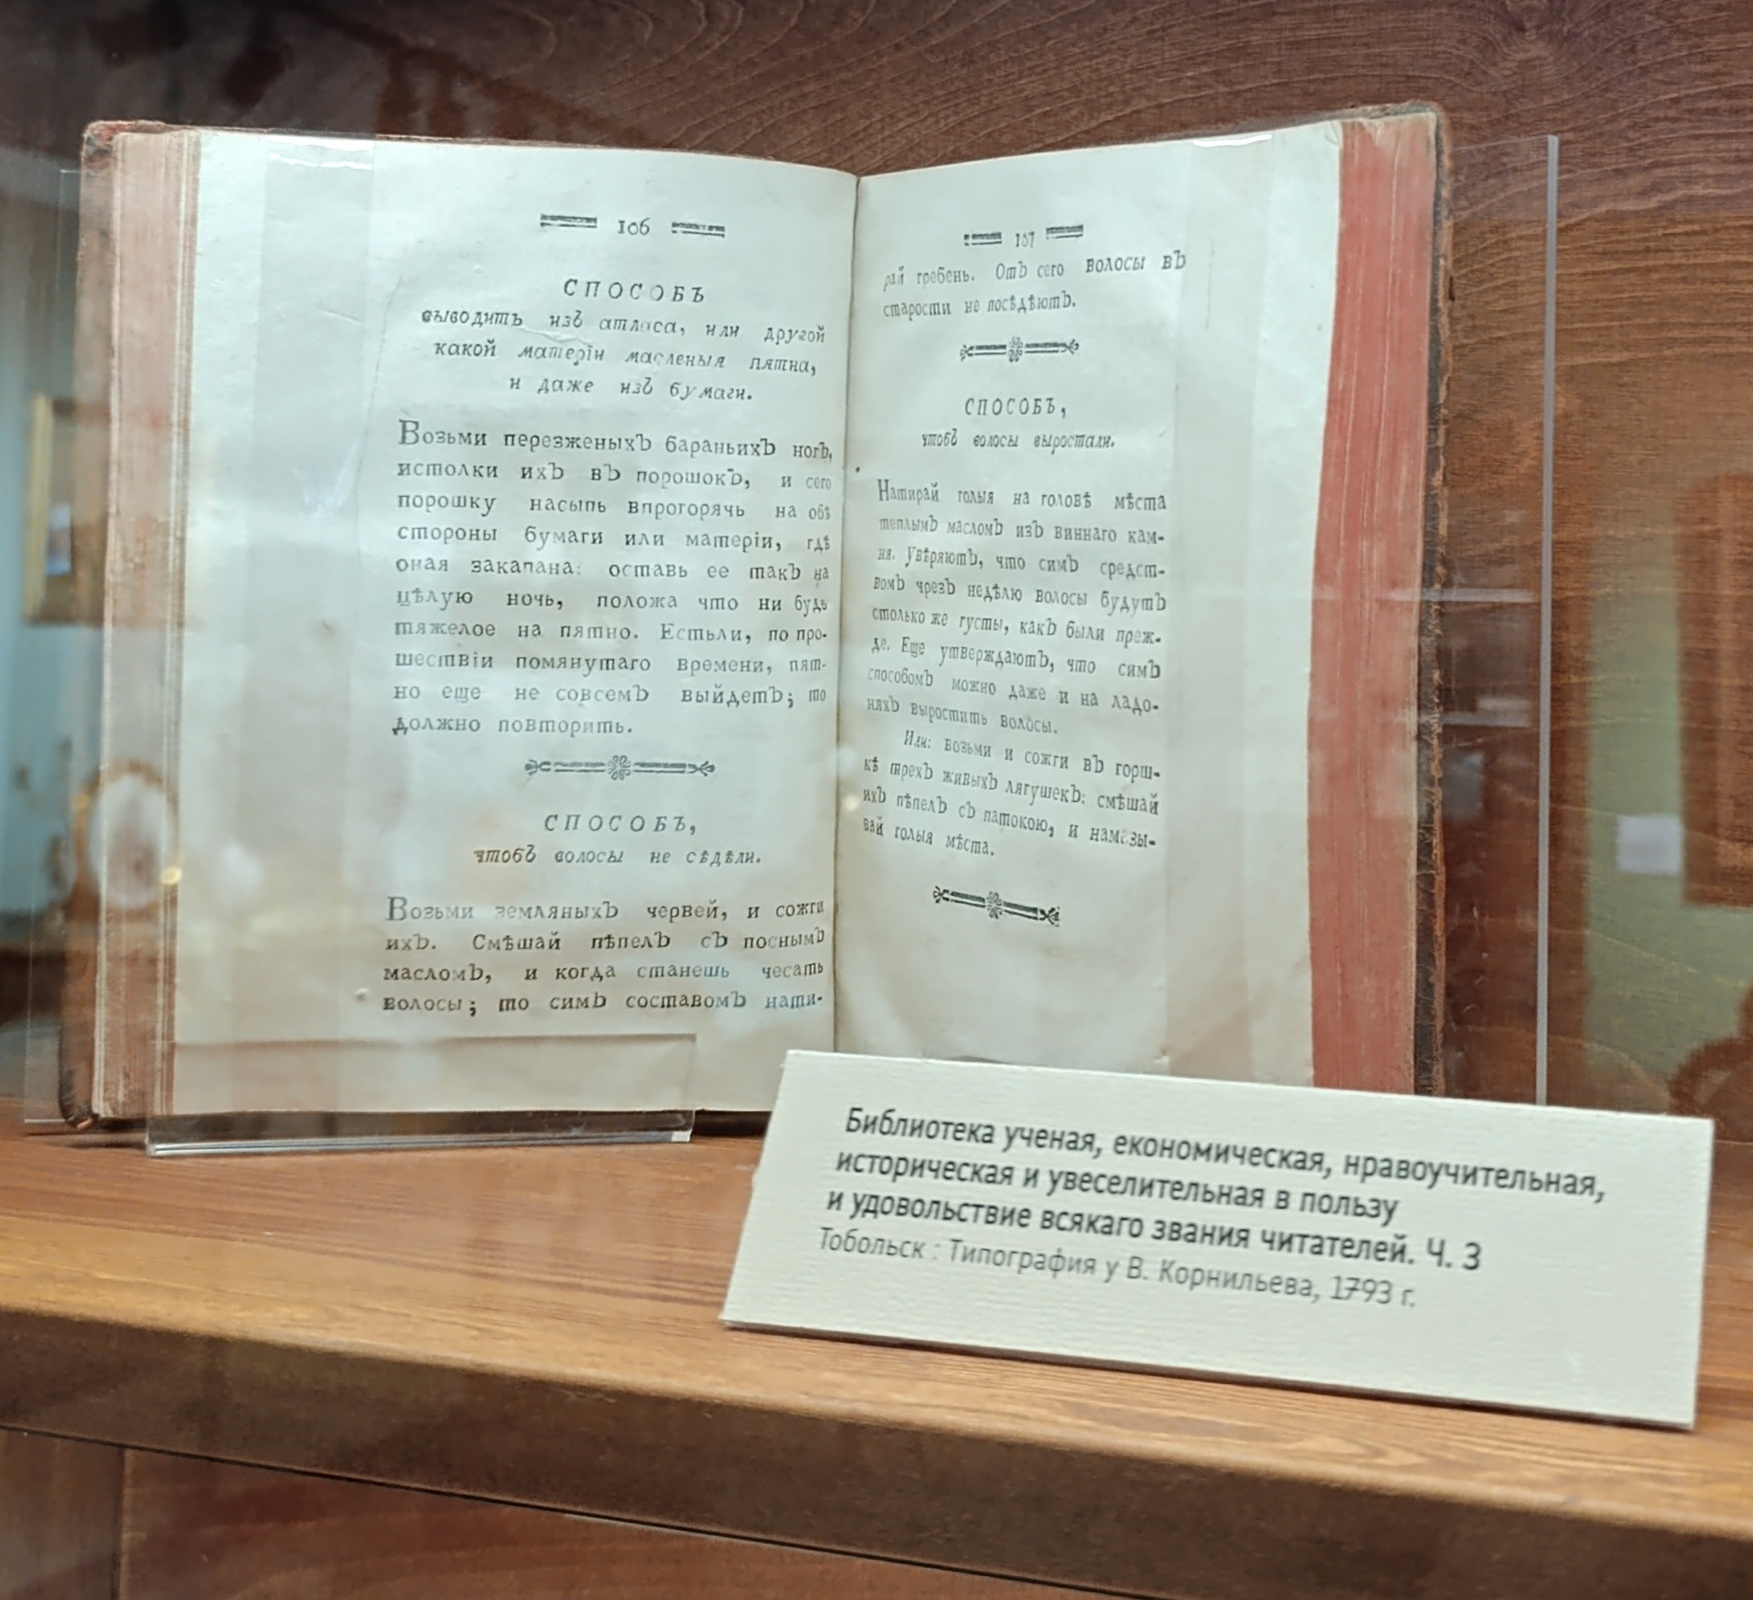 106
СПОСОБЪ
выводить изъ атласа, или другой
какой матеріи масленыя пятна,
и даже изъ бумаги.
Возьми перезженыхъ бараньихъ ногъ,
истолки ихъ въ порошокъ, и сего
порошку насыпь впрогорячь на обѣ
стороны бумаги или матеріи, гдѣ
оная закапана: оставь ее такъ на
цѣлую ночь, положа что ни будь
тяжелое на пятно. Естьли, по про-
шествіи помянутаго времени, пят-
но еще не совсемъ выйдетъ; то
должно повторить.
СПОСОБЪ,
чтобъ волосы не сѣдѣли.
Возьми земляныхъ червей, и сожги
ихъ. Смѣшай пѣпелъ съ поснымъ
масломъ, и когда станешь чесать
волосы; то симъ составомъ нати-
107
рай гребень. Отъ сего волосы въ
старости не посѣдѣютъ.
СПОСОБЪ,
чтобъ волосы выростали.
Натирай голыя на головѣ мѣста
теплымъ масломъ изъ виннаго кам-
ня. Увѣряютъ, что симъ средст-
вомъ чрезъ недѣлю волосы будутъ
столько же густы, какъ были преж-
де. Еще утверждаютъ, что симъ
способомъ можно даже и на ладо-
няхъ выростить волосы.
Или: возьми и сожги въ горш-
кѣ трехъ живыхъ лягушекъ: смѣшай
ихъ пѣпелъ съ патокою, и намазы-
вай голыя мѣста.
Библиотека ученая, економическая, нравоучительная,
историческая и увеселительная в пользу
и удовольствие всякаго звания читателей. Ч. 3
Тобольск : Типография у В. Корнильева, 1793 г.